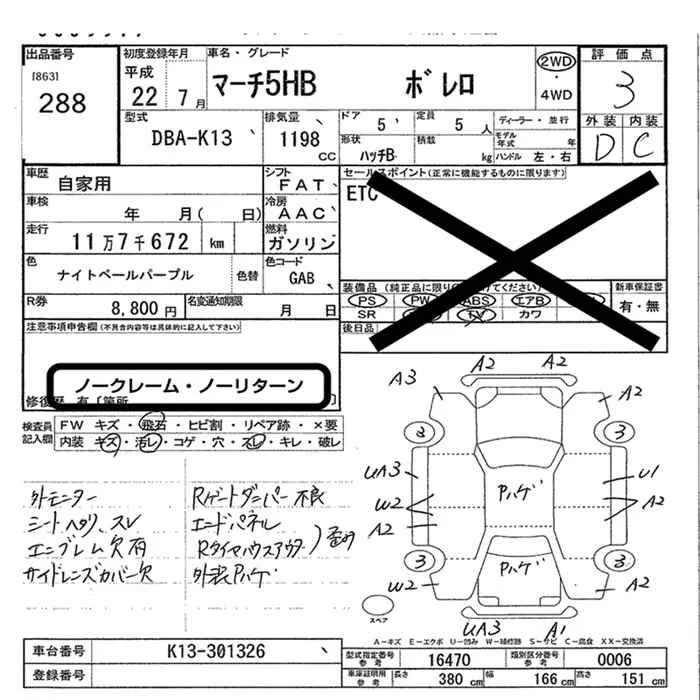 出品番号
[863]
288
初度登録年月
平成
22 7月
車名・グレード
マーチ5HB ボレロ
2WD
・
4WD
評価点
3
外装 内装
D C
型式
DBA-K13
排気量
1198
CC
ドア
5
定員
5人
ディーラー・並行
形状
ハッチB
積載
kg
モデル年式 年
ハンドル 左・右
車歴
自家用
シフト
FAT
車検
年 月( 日)
冷房
AAC
走行
11万7千672 km
燃料
ガソリン
色
ナイトベールパープル
色替
色コード
GAB
R券
8,800円
名変通知期限
月 日
セールスポイント(正常に機能するものに限ります)
ETC
装備品
新車保証書
有・無
PS PW ABS エアB
SR TV カワ
後日品
注意事項申告欄(不具合内容等は具体的に記入して下さい)
ノークレーム・ノーリターン
修復歴 有〔箇所
検査員記入欄
FW キズ・飛石・ヒビ割・リペア跡・×要
内装 キズ・汚レ・コゲ・穴・スレ・キレ・破レ
外モニター
シートヘタリ、スレ
エンブレム欠有
サイドレンズカバー欠
Rゲートダンパー不良
エンドパネル
Rタイヤハウスアウター
外装Pハゲ
A3
A2
A2
A2
3
3
UA3
U1
W2
A2
A2
3
3
W2
A2
Pハゲ
Pハゲ
UA3
A1
スペア
A-キズ E-エクボ U-凹み W-補修跡 S-サビ C-腐食 XX-交換済
車台番号
K13-301326
登録番号
型式指定番号
参考
16470
類別区分番号
参考
0006
車庫証明用
参考
長さ
380 cm
幅
166 cm
高さ
151 cm